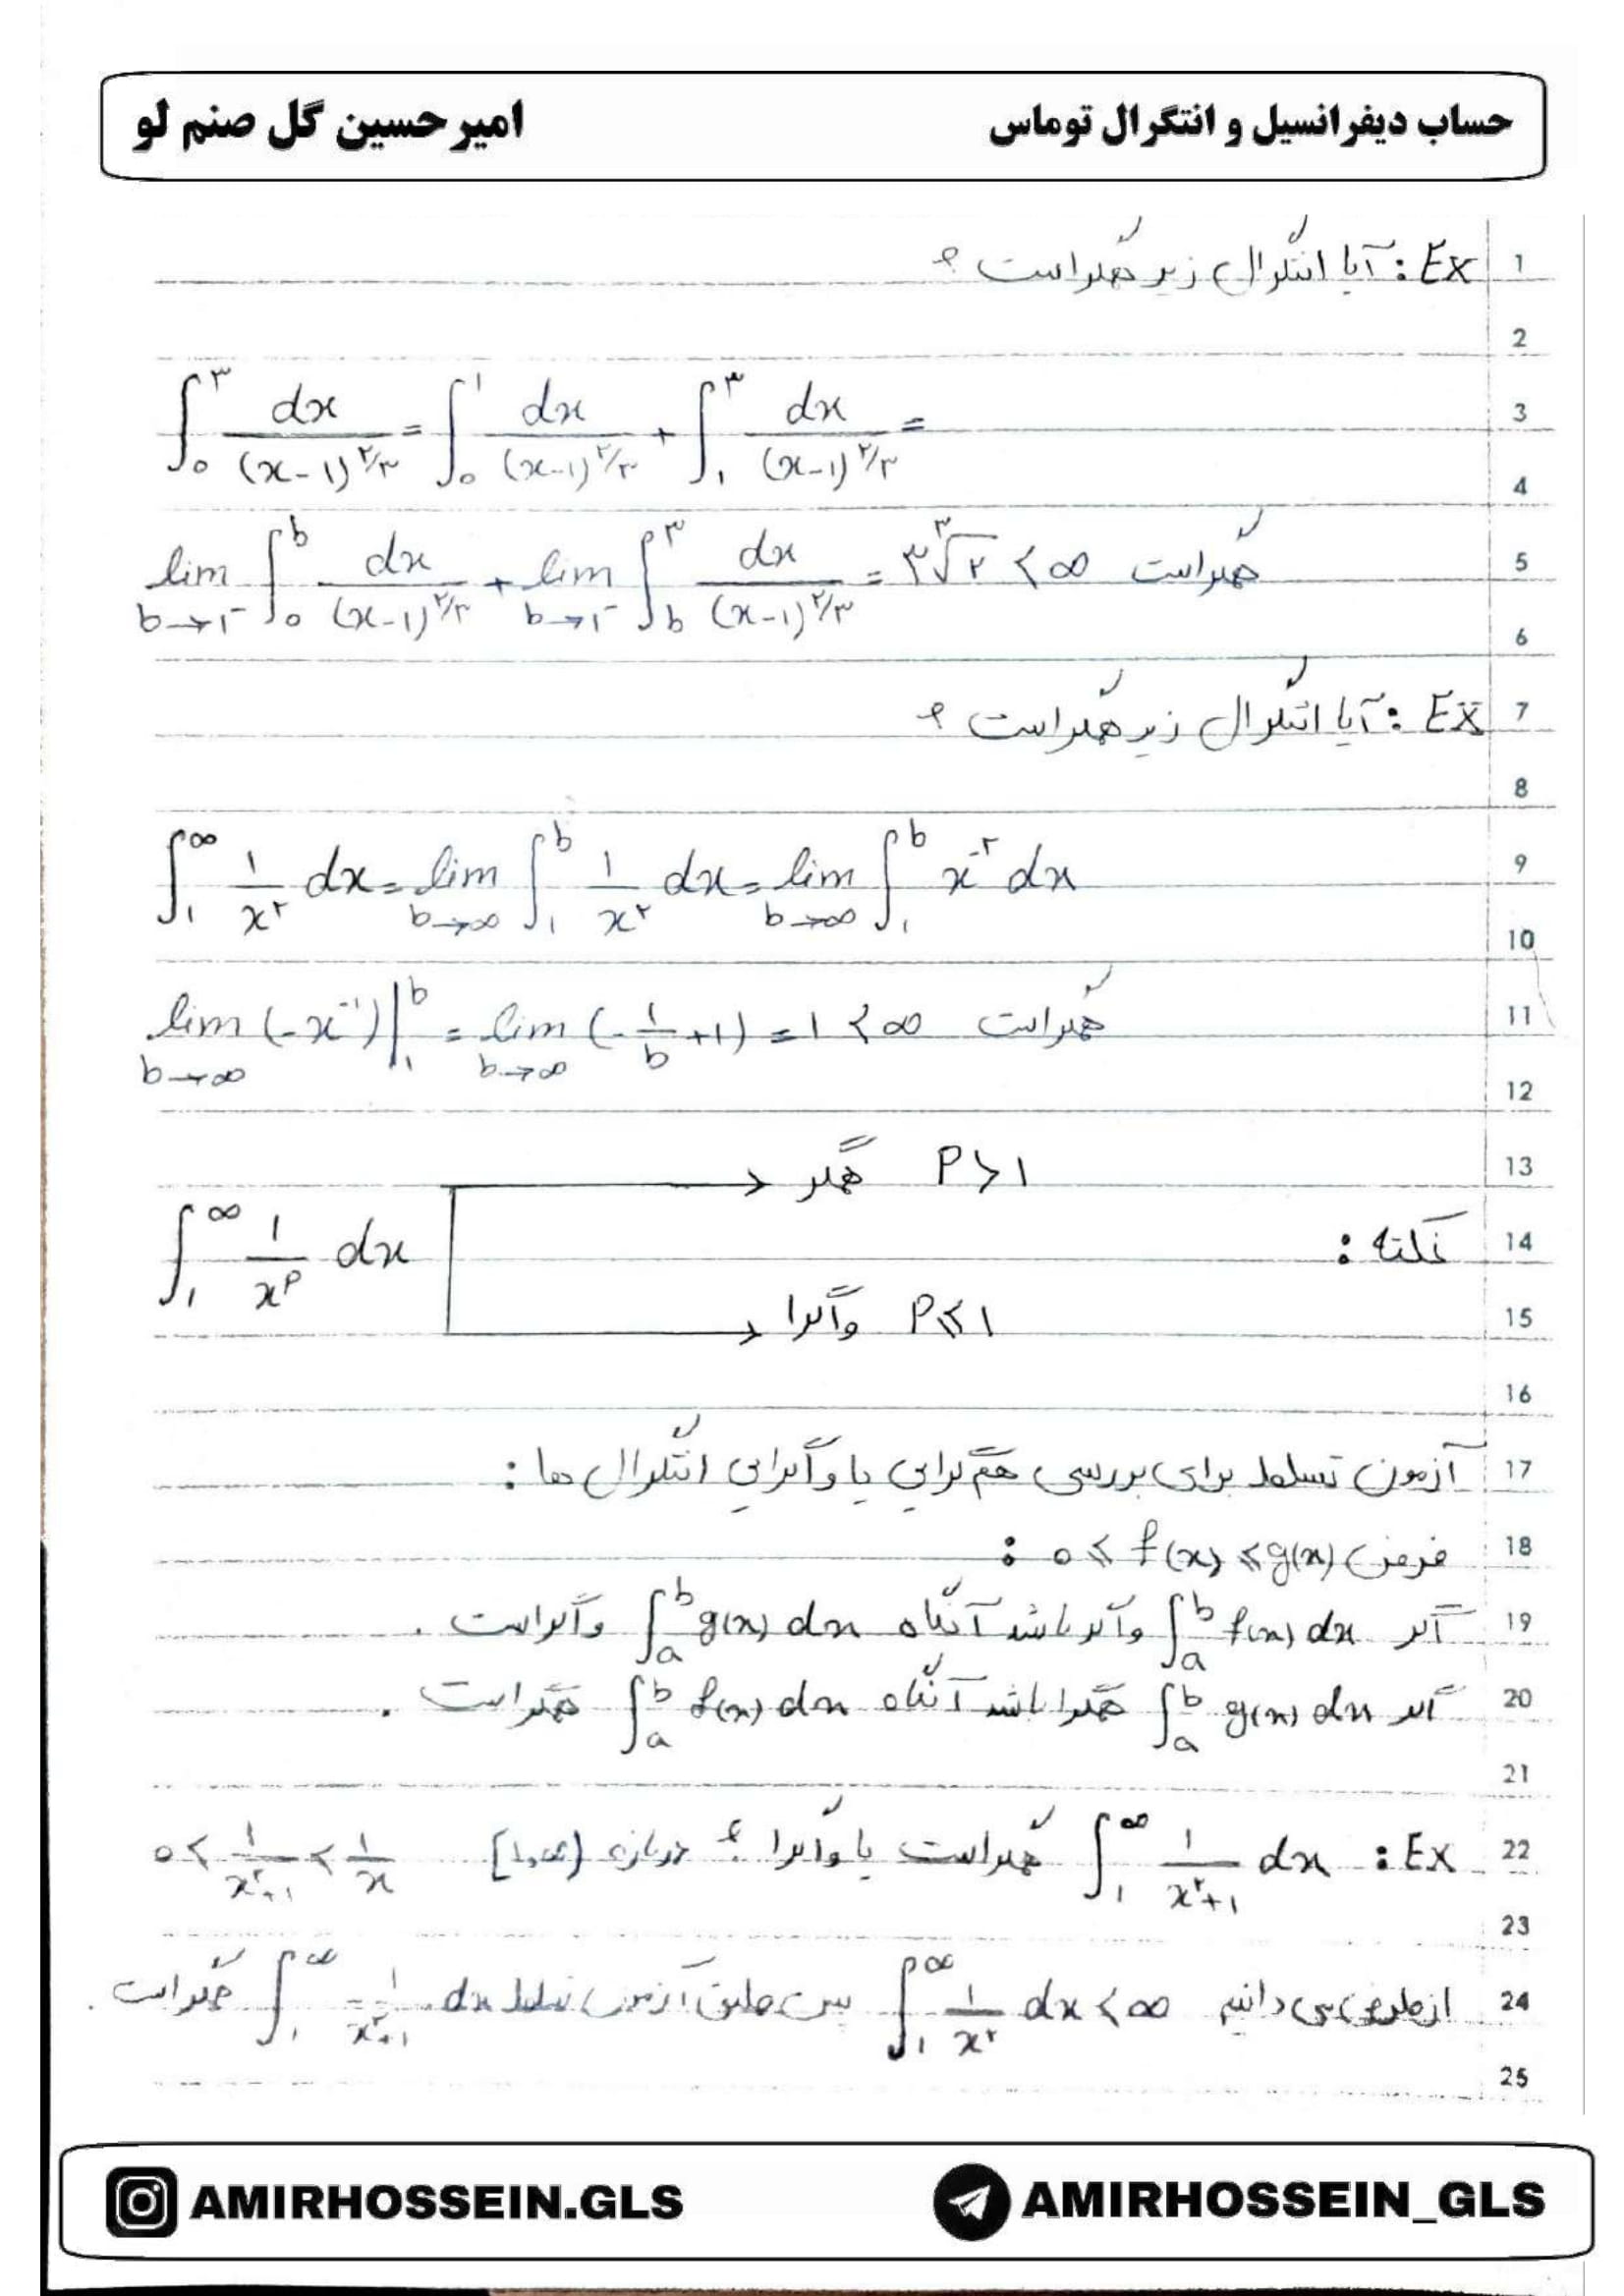 حساب دیفرانسیل و انتگرال توماس
امیرحسین گل صنم لو
1 Ex : آیا انتگرال زیر همگراست ؟
2
3 ∫₀^۳ dx/(x-1)^۲/۳ = ∫₀^۱ dx/(x-1)^۲/۳ + ∫₁^۳ dx/(x-1)^۲/۳ =
4
5 lim b→1⁻ ∫₀^b dx/(x-1)^۲/۳ + lim b→1⁻ ∫_b^۳ dx/(x-1)^۲/۳ = ۳∛۲ < ∞ همگراست
6
7 Ex : آیا انتگرال زیر همگراست ؟
8
9 ∫₁^∞ 1/x^۲ dx = lim b→∞ ∫₁^b 1/x^۲ dx = lim b→∞ ∫₁^b x^-۲ dx
10
11 lim b→∞ (-x^-1)|₁^b = lim b→∞ (-1/b +1) = 1 < ∞ همگراست
12
13 P>1 همگرا
14 نکته : ∫₁^∞ 1/x^p dx
15 P≤1 واگرا
16
17 آزمون تسلط برای بررسی همگرایی یا واگرایی انتگرال ها :
18 فرض 0 ≤ f(x) ≤ g(x) :
19 اگر ∫_a^b f(x) dx واگرا باشد آنگاه ∫_a^b g(x) dx واگراست .
20 اگر ∫_a^b g(x) dx همگرا باشد آنگاه ∫_a^b f(x) dx همگراست .
21
22 Ex : ∫₁^∞ 1/x^۲+1 dx همگراست یا واگرا ؟ در بازه [1,∞) 0 < 1/x^۲+1 < 1/x
23
24 از طرفی می دانیم ∫₁^∞ 1/x^۲ dx < ∞ پس طبق آزمون تسلط ∫₁^∞ 1/x^۲+1 dx همگراست .
25
AMIRHOSSEIN.GLS
AMIRHOSSEIN_GLS